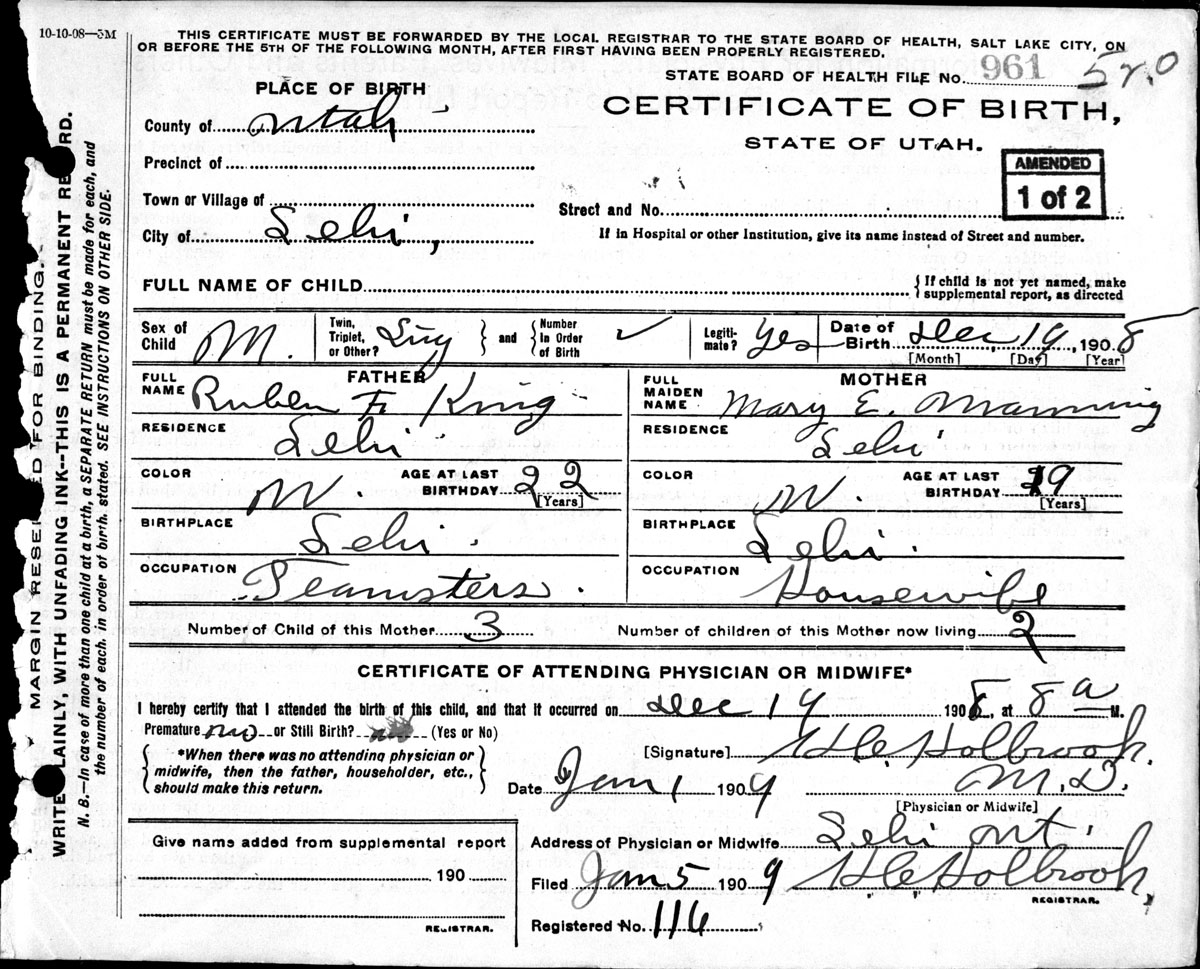 10-10-08—5M
THIS CERTIFICATE MUST BE FORWARDED BY THE LOCAL REGISTRAR TO THE STATE BOARD OF HEALTH, SALT LAKE CITY, ON
OR BEFORE THE 5TH OF THE FOLLOWING MONTH, AFTER FIRST HAVING BEEN PROPERLY REGISTERED.
STATE BOARD OF HEALTH FILE No. 961
PLACE OF BIRTH
CERTIFICATE OF BIRTH,
STATE OF UTAH.
AMENDED
1 of 2
County of Utah
Precinct of
Town or Village of
City of Lehi,
Street and No.
If in Hospital or other Institution, give its name instead of Street and number.
FULL NAME OF CHILD
{ If child is not yet named, make
supplemental report, as directed
Sex of Child M. Twin, Triplet, or Other? Sing } and { Number In Order of Birth ✓ Legiti-mate? Yes Date of Birth Dec, 19, 1908
[Month] [Day] [Year]
FATHER
FULL NAME Ruben F. King
RESIDENCE Lehi
COLOR W. AGE AT LAST BIRTHDAY 22 [Years]
BIRTHPLACE Lehi.
OCCUPATION Teamsters.
MOTHER
FULL MAIDEN NAME Mary E. Manning
RESIDENCE Lehi
COLOR W. AGE AT LAST BIRTHDAY 19 [Years]
BIRTHPLACE Lehi.
OCCUPATION Housewife
Number of Child of this Mother 3 Number of children of this Mother now living 2
CERTIFICATE OF ATTENDING PHYSICIAN OR MIDWIFE*
I hereby certify that I attended the birth of this child, and that it occurred on Dec 19 1908, at 8 a M.
Premature no or Still Birth? no (Yes or No)
{ *When there was no attending physician or
midwife, then the father, householder, etc.,
should make this return. }
[Signature] Holbrook.
M.D.
[Physician or Midwife]
Date Jan 1 1909
Address of Physician or Midwife Lehi Ut.
Filed Jan 5 1909 Holbrook.
REGISTRAR.
Registered No. 116
Give name added from supplemental report
190
REGISTRAR.
MARGIN RESE ED FOR BINDING.
WRITE LAINLY, WITH UNFADING INK--THIS IS A PERMANENT RE RD.
N. B.—In case of more than one child at a birth, a SEPARATE RETURN must be made for each, and
the number of each, in order of birth, stated. SEE INSTRUCTIONS ON OTHER SIDE.